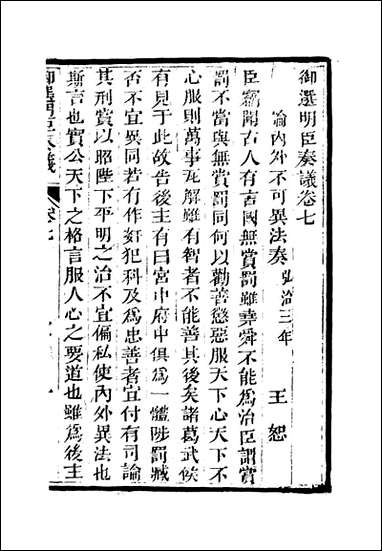 御選明臣奏議卷七
論內外不可異法奏弘治三年
王恕
臣竊聞古人有言國無賞罰雖堯舜不能為治臣謂賞
罰不當與無賞罰同何以勸善懲惡服天下心天下不
心服則萬事瓦解雖有智者不能善其後矣諸葛武侯
有見于此故告後主有曰宮中府中俱為一體陟罰臧
否不宜異同若有作奸犯科及為忠善者宜付有司論
其刑賞以昭陛下平明之治不宜偏私使內外異法也
斯言也實公天下之格言服人心之要道也雖為後主
御選明臣奏議
卷七
一